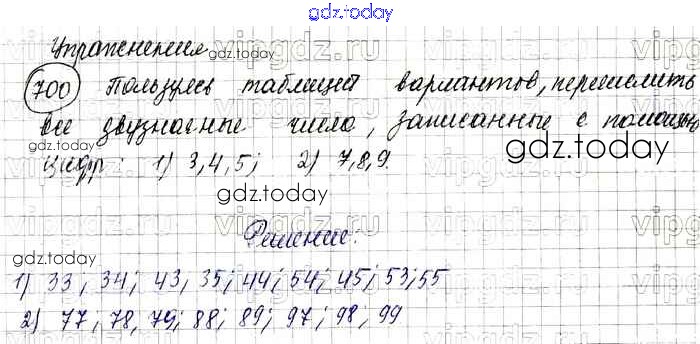 gdz.today
Упражнения
gdz.today
vipgdz.ru
700 Пользуясь таблицей вариантов, перечислить
все двузначные числа, записанные с помощью
цифр: 1) 3,4,5; 2) 7,8,9.
gdz.today
gdz.today
vipgdz.ru
gdz.today
Решение:
1) 33; 34; 43, 35; 44; 54; 45; 53; 55
2) 77, 78, 79; 88; 89; 97; 98, 99